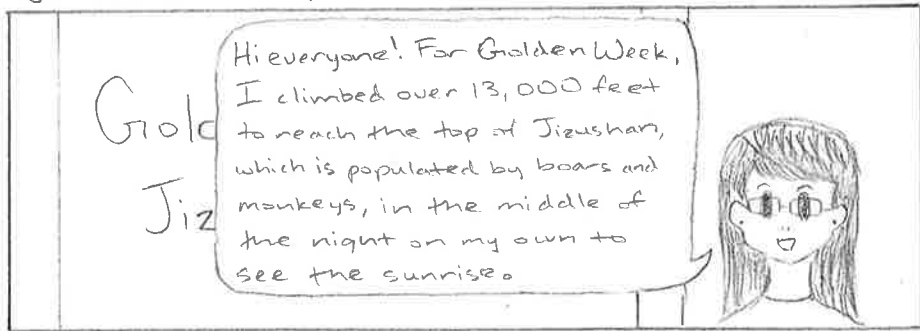 Gold
Jiz
Hi everyone! For Golden Week,
I climbed over 13,000 feet
to reach the top of Jizushan,
which is populated by boars and
monkeys, in the middle of
the night on my own to
see the sunrise.